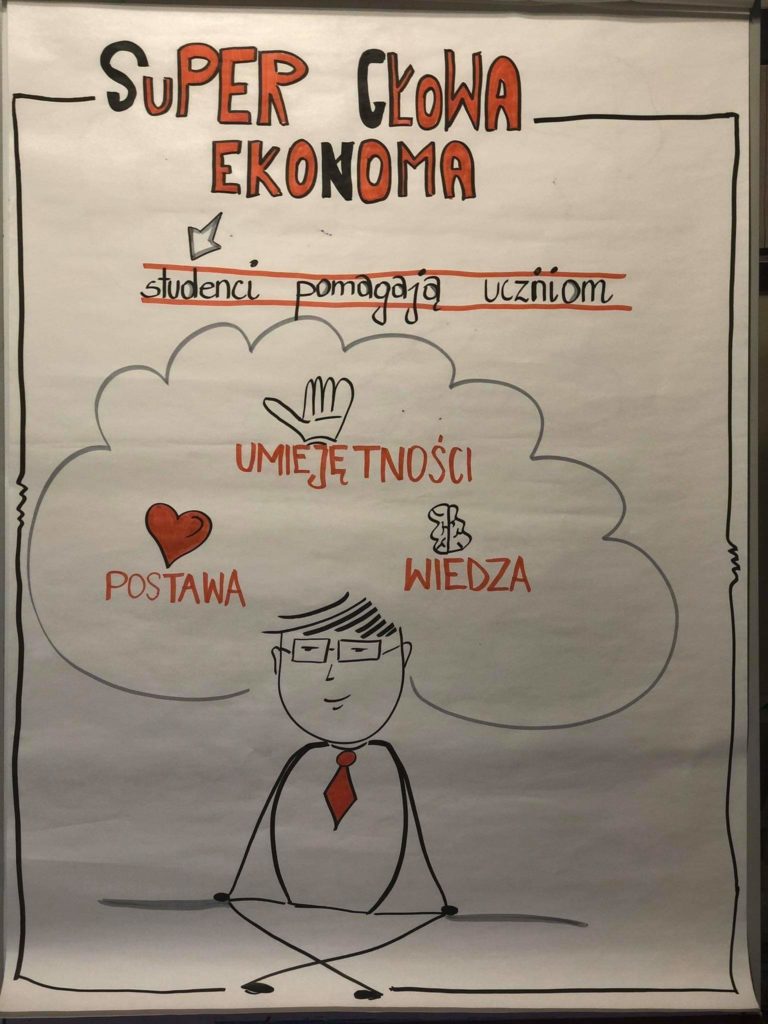 SuPER GŁOWA
EKONOMA
studenci pomagają uczniom
UMIEJĘTNOŚCI
POSTAWA
WIEDZA